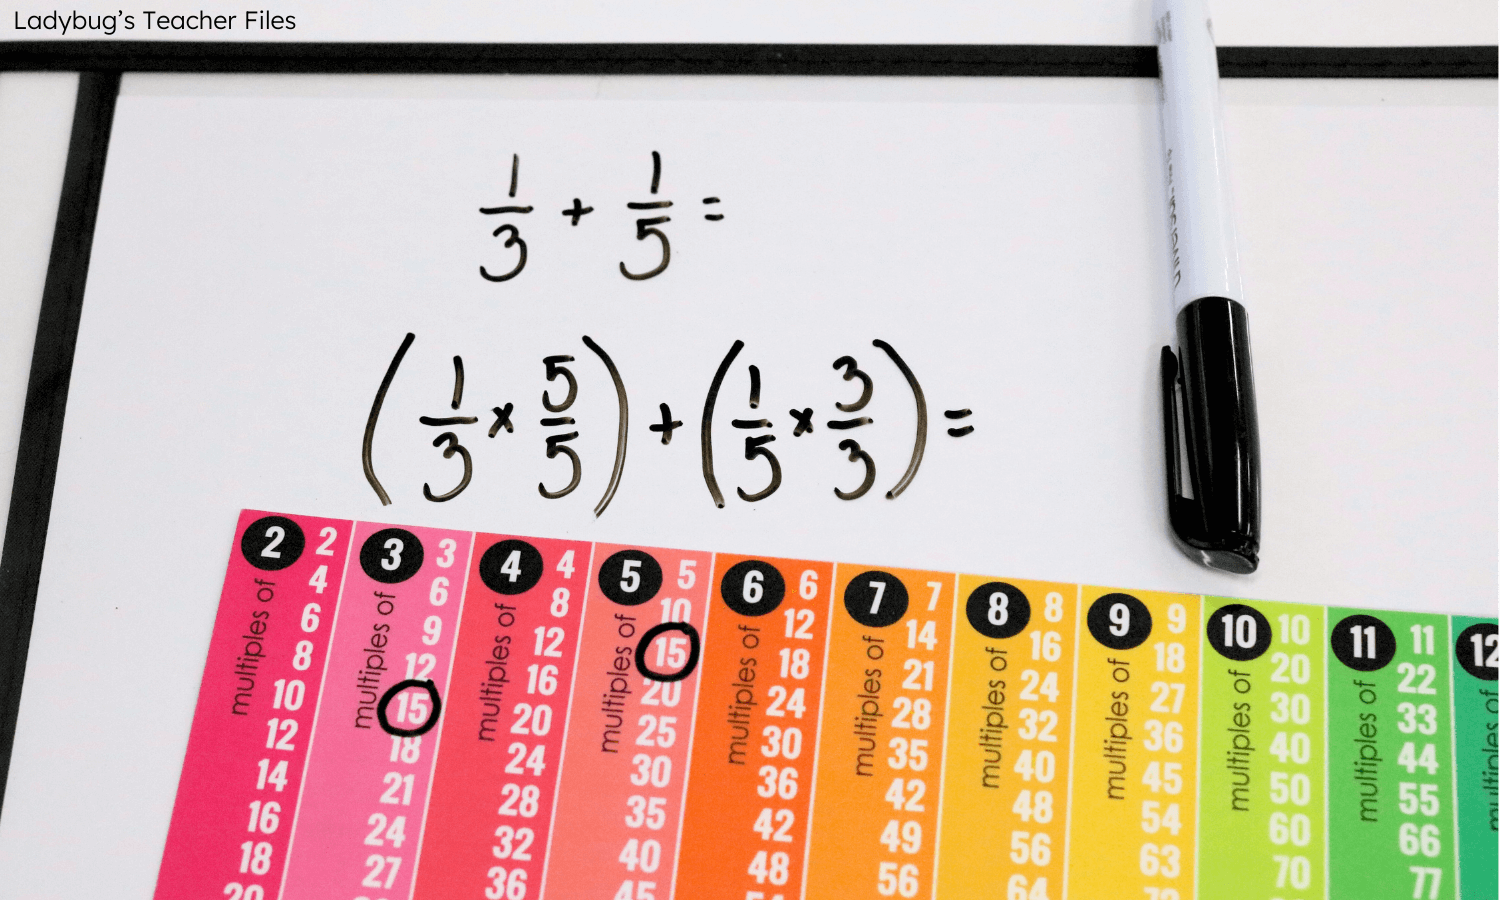 Ladybug's Teacher Files
1/3 + 1/5 =
(1/3 × 5/5) + (1/5 × 3/3) =
2 multiples of 2 4 6 8 10 12 14 16 18 20
3 multiples of 3 6 9 12 15 18 21 24 27
4 multiples of 4 8 12 16 20 24 28 32 36
5 multiples of 5 10 15 20 25 30 35 40 45
6 multiples of 6 12 18 24 30 36 42 48 54
7 multiples of 7 14 21 28 35 42 49 56
8 multiples of 8 16 24 32 40 48 56 64
9 multiples of 9 18 27 36 45 54 63 72
10 multiples of 10 20 30 40 50 60 70
11 multiples of 11 22 33 44 55 66 77
12 multiples of